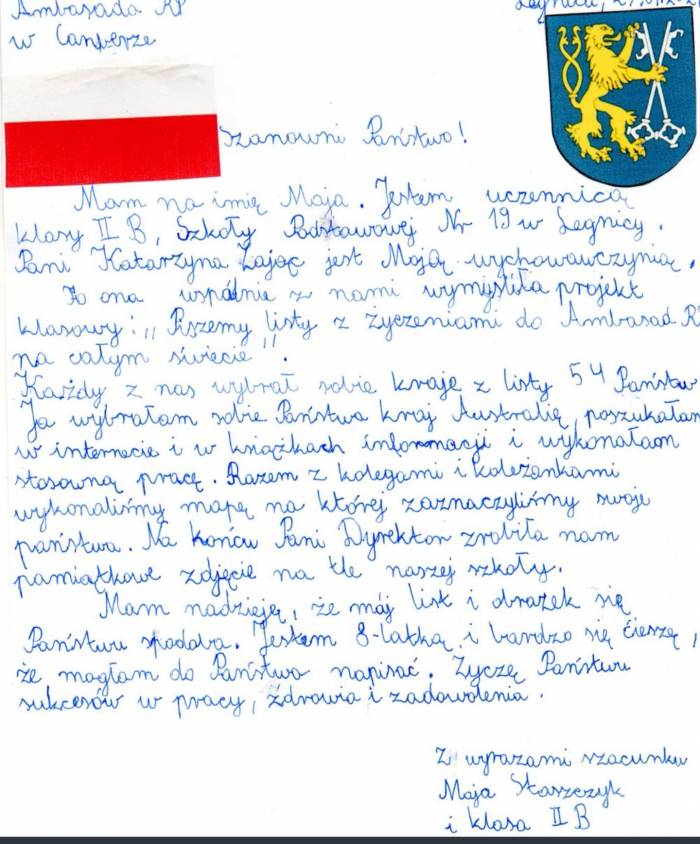 Ambasada RP
w Canberze
Legnica,
Szanowni Państwo!
Mam na imię Maja. Jestem uczennicą
klasy II B, Szkoły Podstawowej Nr 19 w Legnicy.
Pani Katarzyna Zając jest Moją wychowawczynią.
To ona wspólnie z nami wymyśliła projekt
klasowy: ,,Piszemy listy z życzeniami do Ambasad RP
na całym świecie".
Każdy z nas wybrał sobie kraje z listy 54 Państw
Ja wybrałam sobie Państwa kraj Australię, poszukałam
w internecie i w książkach informacji i wykonałam
stosowną pracę. Razem z kolegami i koleżankami
wykonaliśmy mapę na której zaznaczyliśmy swoje
państwa. Na końcu Pani Dyrektor zrobiła nam
pamiątkowe zdjęcie na tle naszej szkoły.
Mam nadzieję, że mój list i obrazek się
Państwu spodoba. Jestem 8-latką i bardzo się cieszę,
że mogłam do Państwa napisać. Życzę Państwu
sukcesów w pracy, zdrowia i zadowolenia.
Z wyrazami szacunku
Maja Staszczyk
i klasa II B